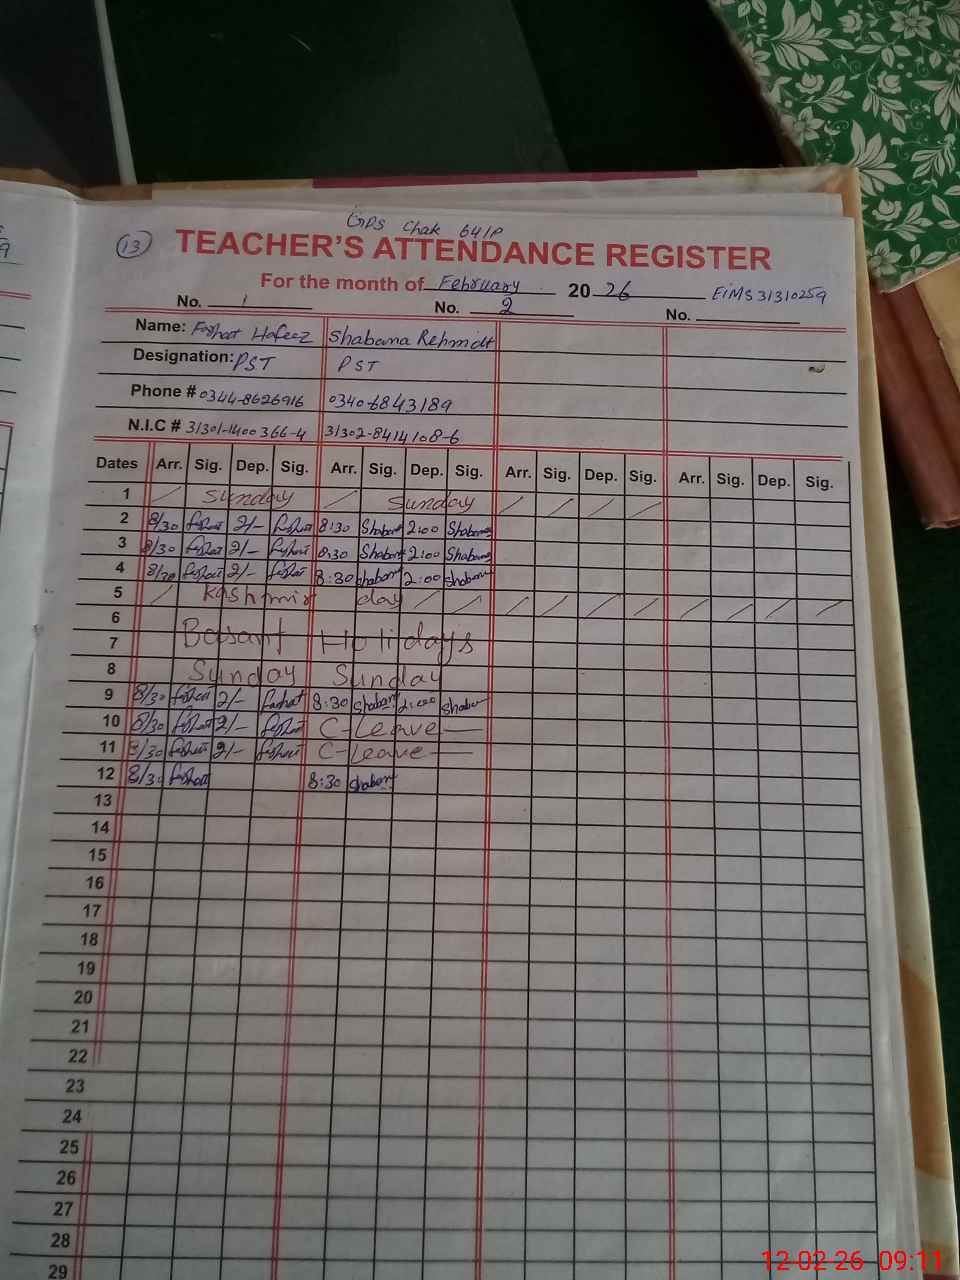 GPS Chak 64/P
(13) TEACHER'S ATTENDANCE REGISTER
For the month of February 20 26 EiMS 31310259
No. 1 No. 2 No.
Name: Farhat Hafeez Shabana Rehmat
Designation: PST PST
Phone # 0344-8626916 0340-6843189
N.I.C # 31301-1400366-4 31302-8414108-6
Dates Arr. Sig. Dep. Sig. Arr. Sig. Dep. Sig. Arr. Sig. Dep. Sig. Arr. Sig. Dep. Sig.
1 / Sunday / Sunday / / / /
2 8/30 Farhat 2/- Farhat 8:30 Shabana 2:00 Shabana
3 8/30 Farhat 2/- Farhat 8:30 Shabana 2:00 Shabana
4 8/30 Farhat 2/- Farhat 8:30 Shabana 2:00 Shabana
5 / Kashmir day / / / / / / / / / /
6
7 Basant Holidays
8 Sunday Sunday
9 8/30 Farhat 2/- Farhat 8:30 Shabana 2:00 Shaban
10 8/30 Farhat 2/- Farhat C-Leave —
11 8/30 Farhat 2/- Farhat C-Leave —
12 8/30 Farhat 8:30 Shabana
13
14
15
16
17
18
19
20
21
22
23
24
25
26
27
28
29
12-02-26 09:11